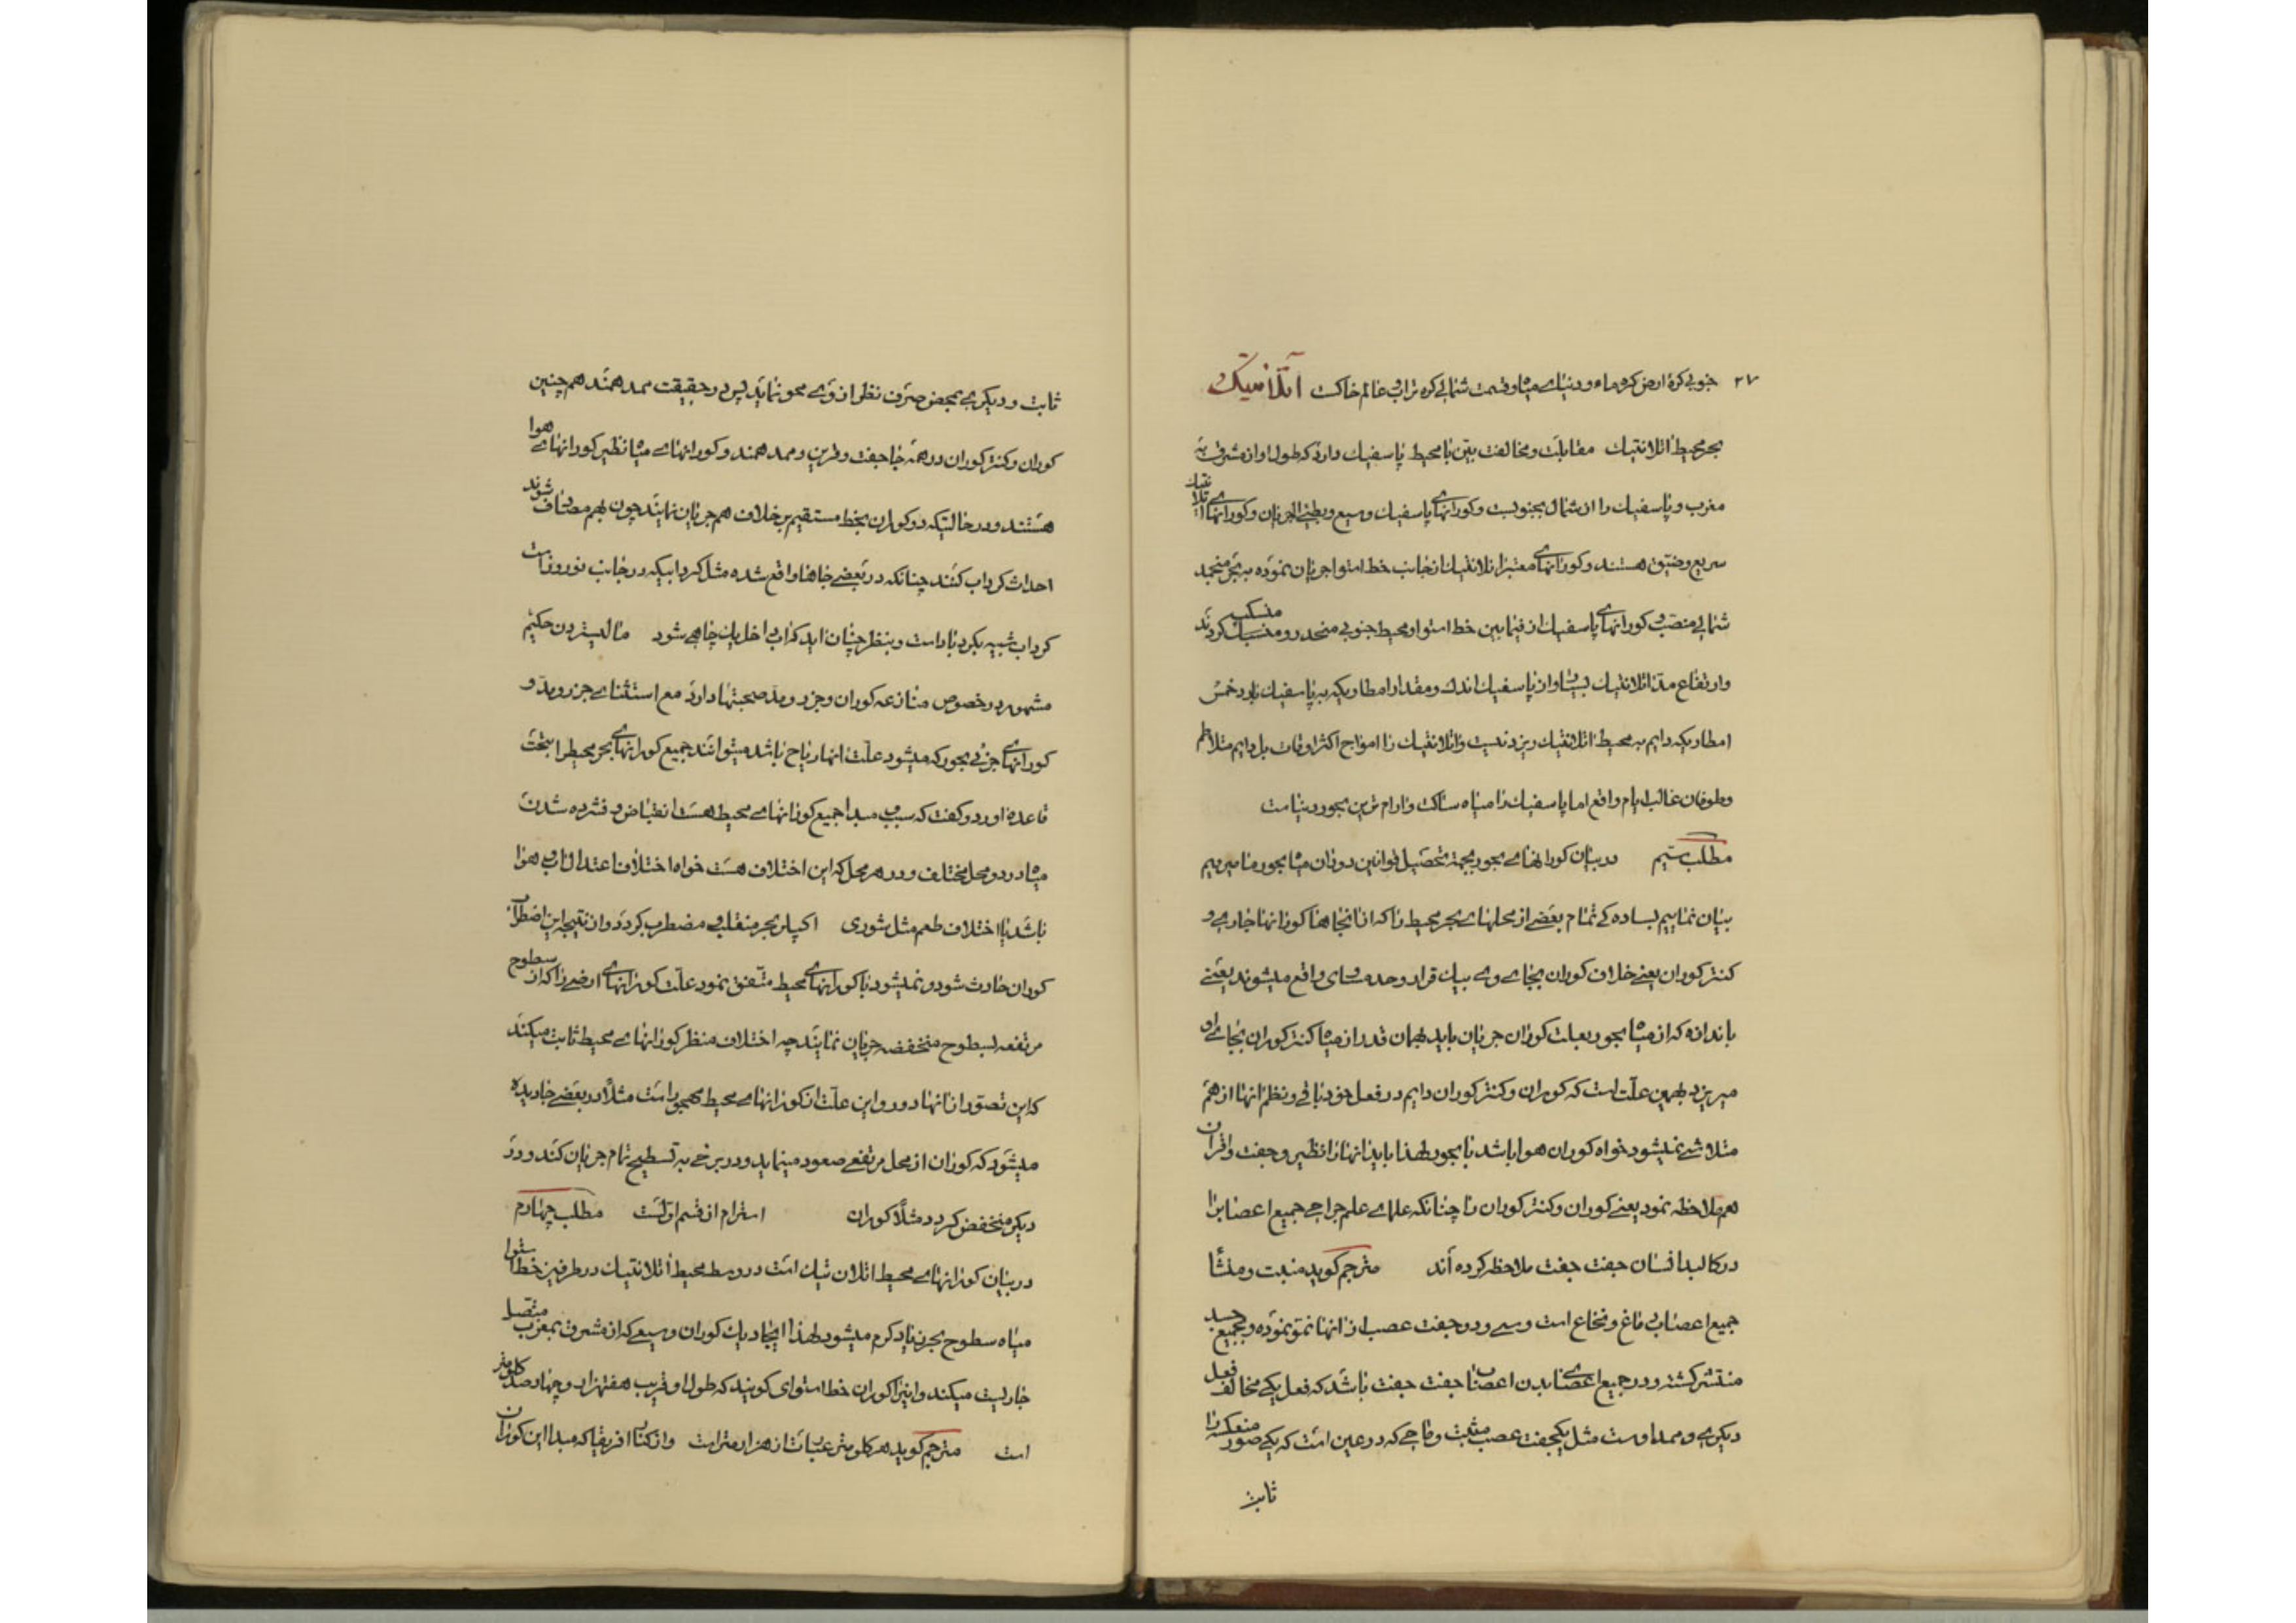 ۲۷ جنوبی کرهٔ ارض کره ماء و دنیای میاه و قسمت شمالی کره تراب و عالم خاکست اتلانتیک
بحر محیط اتلانتیک مقابلت و مخالفت بین با محیط پاسفیک دارد که طول او از مشرق به
مغرب و پاسفیک را از شمال بجنوبست و کورانهای پاسفیک وسیع و بطیئ الجریان و کورانهای اتلانتیک
سریع و ضیق هستند و کورانهای معتبر اتلانتیک از جانب خط استوا جریان نموده به بحر منجمد
شمالی منصب و کورانهای پاسفیک از فیمابین خط استوا و محیط جنوبی منحدر و منسکب گردند
وارتفاع مد اتلانتیک بسیار و از پاسفیک اندک و مقدار امطاریکه به پاسفیک بارد خمس
امطاریکه دایم به محیط اتلانتیک ریزد نیست و اتلانتیک را امواج اکثر اوقات بل دایم متلاطم
و طوفان غالب ایام واقع اما پاسفیک را میاه ساکت و آرام ترین بحور دنیاست
مطلب سیم در بیان کورانهای بحور بجهة تحصیل قوانین دوران میاه بحور ما میریم
بیان نماییم بساده کی تمام بعضی از محلهای بحر محیط را که از انجاها کورانها جاری و
کنتر کوران یعنی خلاف کوران بجای وی بیک قرار و حد مساوی واقع میشوند یعنی
باندازه که از میاه بحور بعلت کوران جریان یابد بهمان قدر از میاه کنتر کوران بجای او
میریزد بهمین علت است که کوران و کنتر کوران دایم در فعل خود باقی و نظم انها از هم
متلاشی نمیشود خواه کوران هوا باشد یا بحور لهذا باید انها را نظیر و جفت و اقران
هم ملاحظه نمود یعنی کوران و کنتر کوران را چنانکه علمای علم جراحی جمیع اعصاب را
در کالبد انسان جفت جفت ملاحظه کرده اند مترجم گوید منبت و منشأ
جمیع اعصاب دماغ و نخاع است و سی و دو جفت عصب از انها نمو نموده و بجمیع جسد
منتشر کشته و در جمیع اعضای بدن اعصاب جفت جفت باشد که فعل یکی مخالف فعل
دیگری و ممد اوست مثل یکجفت عصب مثبت و ماحی که در عین است که یکی صور منعکسه را
ثابت
ثابت و دیگری بمحض صرف نظر از وی محو نماید پس در حقیقت ممد همند هم چنین
کوران و کنتر کوران در همه جا جفت و قرین و ممد همند و کورانهای میاه نظیر کورانهای هوا
هستند و در حالتیکه دو کوران بخط مستقیم بر خلاف هم جریان نمایند چون بهم مصادف شوند
احداث کرداب کنند چنانکه در بعضی جاها واقع شده مثل کردابیکه در جانب نوروز است
کرداب شبیه بکردباد است و بنظر چنان اید که اب داخل یک چاهی شود مالیستردن حکیم
مشهور در خصوص منازعه کوران و جزر و مد صحبتها دارد مع استثنای جزر و مد و
کورانهای جزئی بحور که میشود علت انها ریاح باشد میتوانند جمیع کورانهای بحر محیط را بتحت
قاعده اورد و گفت که سبب و مبدا جمیع کورانهای محیط هست انقباض و فشرده شدن
میاه در دو محل مختلف و در هر محل که این اختلاف هست خواه اختلاف اعتدال اب و هوا
باشد یا اختلاف طعم مثل شوری اکیلبر بحر منقلب و مضطرب کردد و از نتیجه این اضطراب
کوران حادث شود و نمیشود با کورانهای محیط متفق نمود علت کورانهای ارضی را که از سطوح
مرتفعه بسطوح منخفضه جریان نمایند چه اختلاف منظر کورانهای محیط ثابت میکند
که این تصور از انها دور و این علت از کورانهای محیط مهجور است مثلا در بعضی جا دیده
میشود که کوران از محل مرتفعی صعود مینماید و در برخی به تسطیح تام جریان کند و در
دیگر منخفض کردد مثلا کوران استرام از قسم اولست مطلب چهارم
در بیان کورانهای محیط اتلان تیک است در وسط محیط اتلانتیک در طرفین خط استوا
میاه سطوح بحر زیاد کرم میشود لهذا ایجاد یک کوران وسیعی که از مشرق بمغرب متصل
جاریست میکند و اینرا کوران خط استوای گویند که طول او قریب هفتهزار و چهارصد کلومتر
است مترجم گوید هر کلومتر عبارت از هزار متر است و از کنار افریقا که مبدا این کوران